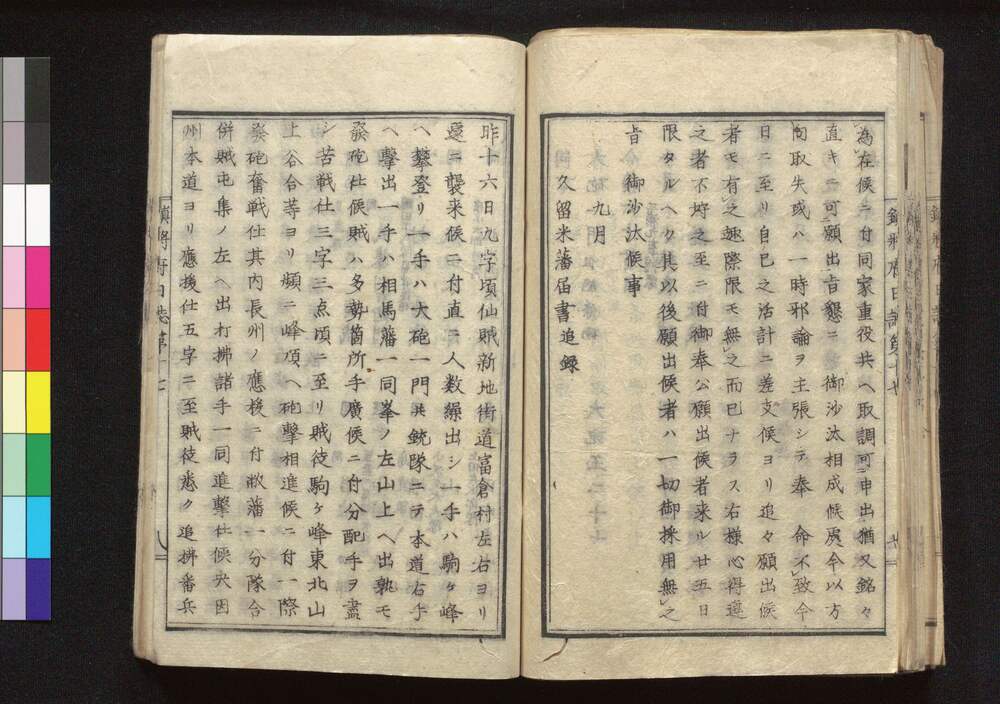 為在候ニ付同家重役共ヘ取調可申出猶又銘々
直キニ可願出旨懇ニ 御沙汰相成候處今以方
向取失或ハ一時邪論ヲ主張シテ奉 命不致今
日ニ至リ自己之活計ニ差支候ヨリ追々願出候
者モ有之趣際限モ無之而已ナラス右様心得違
之者不埒之至ニ付御奉公願出候者来ル廿五日
限タルヘク其以後願出候者ハ一切御採用無之
旨 御沙汰候事
九月
久留米藩届書追録
昨十六日九字頃仙賊新地街道富倉村左右ヨリ
還ニ襲来候ニ付直ニ人数繰出シ一手ハ駒ヶ峰
ヘ攀登リ一手ハ大砲一門共銃隊ニテ本道右手
ヘ撃出一手ハ相馬藩一同峯ノ左山上ヘ出孰モ
發砲仕候賊ハ多勢箇所手廣候ニ付分配手ヲ盡
シ苦戦仕三字三点頃ニ至リ賊徒駒ヶ峰東北山
上谷合等ヨリ頻ニ峰頂ヘ砲撃相進候ニ付一際
發砲奮戦仕其内長州ノ應援ニ付敝藩一分隊合
併賊屯集ノ左ヘ出打拂諸手一同進撃仕候央因
州本道ヨリ應援仕五字ニ至賊徒悉ク追拂番兵
鎮将府日誌第十七
八